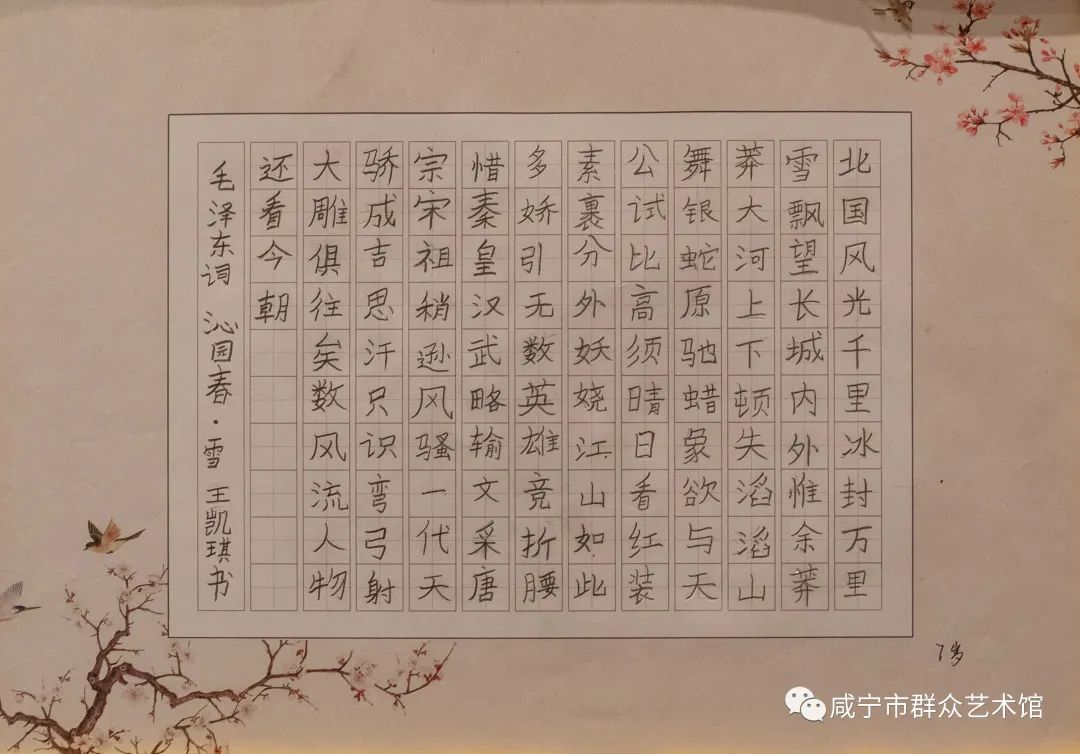 北国风光千里冰封万里
雪飘望长城内外惟余莽
莽大河上下顿失滔滔山
舞银蛇原驰蜡象欲与天
公试比高须晴日看红装
素裹分外妖娆江山如此
多娇引无数英雄竞折腰
惜秦皇汉武略输文采唐
宗宋祖稍逊风骚一代天
骄成吉思汗只识弯弓射
大雕俱往矣数风流人物
还看今朝
毛泽东词 沁园春·雪 王凯琪书
7岁
咸宁市群众艺术馆